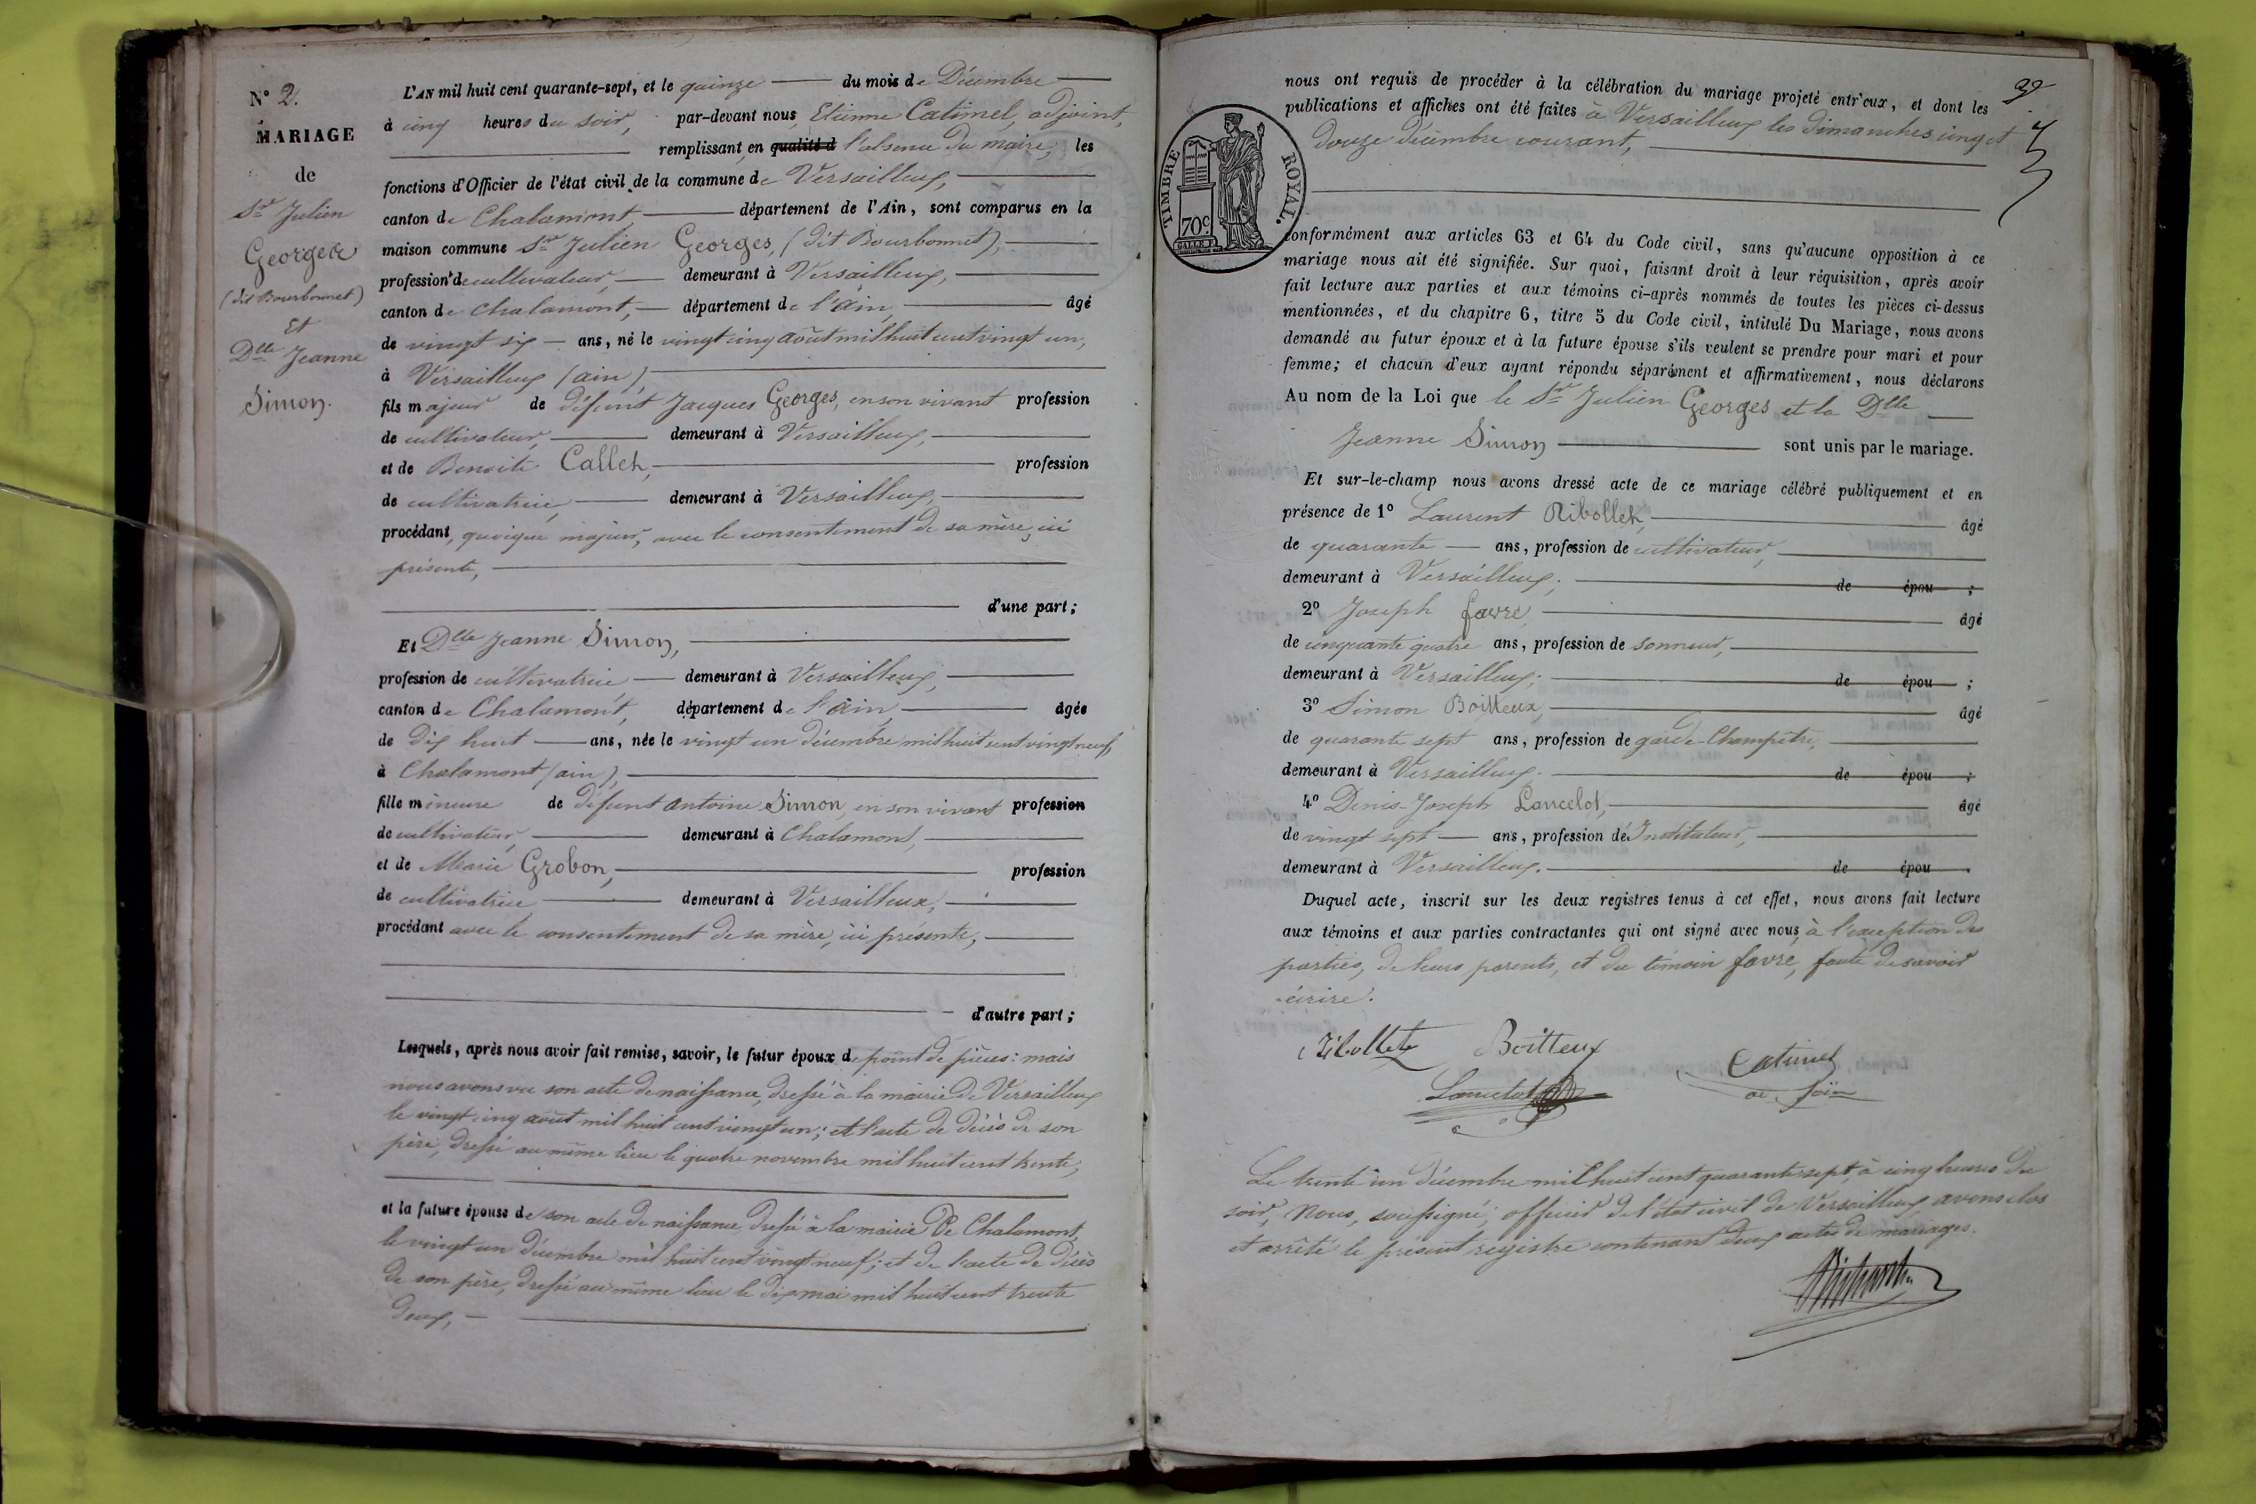 N° 2.
MARIAGE
de
Sr Julien
Georges
(dit Bourbonnet)
et
Dlle Jeanne
Simon.
L'AN mil huit cent quarante-sept, et le quinze du mois de Décembre
à cinq heures du soir, par-devant nous, Etienne Catimel, adjoint,
remplissant, en qualité d l'absence du maire, les
fonctions d'Officier de l'état civil de la commune de Versailleux,
canton de Chalamont, département de l'Ain, sont comparus en la
maison commune Sr Julien Georges, (dit Bourbonnet),
profession de cultivateur, demeurant à Versailleux,
canton de Chalamont, département de l'ain, âgé
de vingt six ans, né le vingt cinq août mil huit cent vingt un,
à Versailleux (ain),
fils majeur de défunt Jacques Georges, en son vivant profession
de cultivateur, demeurant à Versailleux,
et de Benoite Callet, profession
de cultivatrice, demeurant à Versailleux,
procédant, quoique majeur, avec le consentement de sa mère, ici
présente,
d'une part ;
Et Dlle Jeanne Simon,
profession de cultivatrice demeurant à Versailleux,
canton de Chalamont, département de l'ain, âgée
de dix huit ans, née le vingt un décembre mil huit cent vingt neuf,
à Chalamont (ain),
fille mineure de défunt antoine Simon, en son vivant profession
de cultivateur, demeurant à Chalamont,
et de Marie Grobon, profession
de cultivatrice demeurant à Versailleux,
procédant avec le consentement de sa mère, ici présente,
d'autre part ;
Lesquels, après nous avoir fait remise, savoir, le futur époux de point de pièces : mais
nous avons vu son acte de naissance, dressé à la mairie de Versailleux
le vingt cinq août mil huit cent vingt un ; et l'acte de décès de son
père, dressé au même lieu le quatre novembre mil huit cent trente,
et la future épouse de son acte de naissance dressé à la mairie de Chalamont,
le vingt un décembre mil huit cent vingt neuf ; et de l'acte de décès
de son père, dressé au même lieu le dix mai mil huit cent trente
deux,
TIMBRE ROYAL.
70c
nous ont requis de procéder à la célébration du mariage projeté entr'eux, et dont les
publications et affiches ont été faites à Versailleux les dimanches cinq et
douze décembre courant,
conformément aux articles 63 et 64 du Code civil, sans qu'aucune opposition à ce
mariage nous ait été signifiée. Sur quoi, faisant droit à leur réquisition, après avoir
fait lecture aux parties et aux témoins ci-après nommés de toutes les pièces ci-dessus
mentionnées, et du chapitre 6, titre 5 du Code civil, intitulé Du Mariage, nous avons
demandé au futur époux et à la future épouse s'ils veulent se prendre pour mari et pour
femme ; et chacun d'eux ayant répondu séparément et affirmativement, nous déclarons
Au nom de la Loi que le Sr Julien Georges et la Dlle
Jeanne Simon sont unis par le mariage.
Et sur-le-champ nous avons dressé acte de ce mariage célébré publiquement et en
présence de 1° Laurent Ribollet, âgé
de quarante ans, profession de cultivateur,
demeurant à Versailleux ; de épou ;
2° Joseph favre, âgé
de cinquante quatre ans, profession de sonneur,
demeurant à Versailleux ; de épou ;
3° Simon Boitteux, âgé
de quarante sept ans, profession de garde-Champêtre,
demeurant à Versailleux. de épou ;
4° Denis-Joseph Lancelot, âgé
de vingt sept ans, profession de Instituteur,
demeurant à Versailleux. de épou .
Duquel acte, inscrit sur les deux registres tenus à cet effet, nous avons fait lecture
aux témoins et aux parties contractantes qui ont signé avec nous, à l'exception des
parties, de leurs parents, et du témoin favre, faute de savoir
écrire.
Ribollet Boitteux Catimel
Lancelot
Le trente un décembre mil huit cent quarante sept, à cinq heures du
soir, Nous, soussigné, officier de l'état civil de Versailleux, avons clos
et arrêté le présent registre contenant deux actes de mariages.